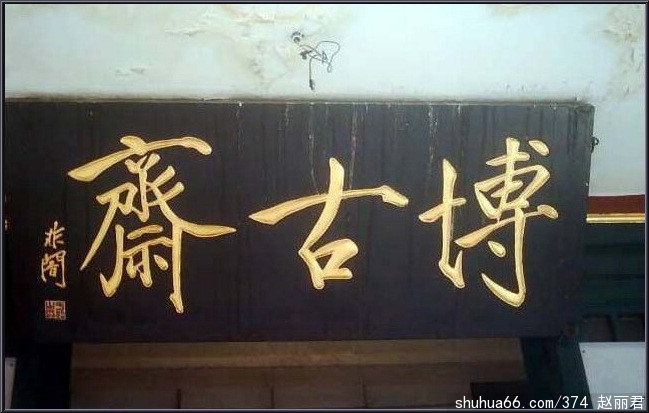 博古齋
非闇
shuhua66.com/374 赵丽君